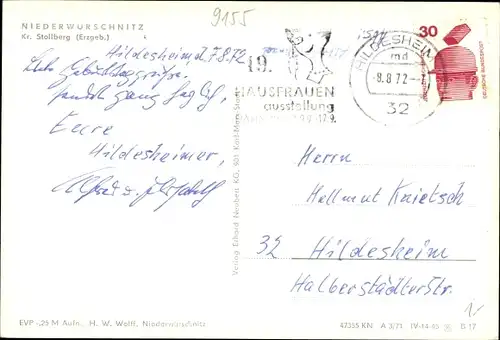 9155
NIEDERWÜRSCHNITZ
Kr. Stollberg (Erzgeb.)
Hildesheim d. 7.8.72
Liebe Geburtstagsgrüsse
sendet ganz
Eure
Hildesheimer,
Alfred u.
19.
HAUSFRAUEN
ausstellung
9.9.-17.9.
HILDESHEIM
md
-8.8.72-
32
30
DEUTSCHE BUNDESPOST
Herrn
Hellmut Knietsch
32 Hildesheim
Halberstädterstr.
Verlag Erhard Neubert KG, 901 Karl-Marx-Stadt
EVP -,25 M Aufn. H. W. Wolff, Niederwürschnitz
47355 KN A 3/71 IV-14-45 B 17